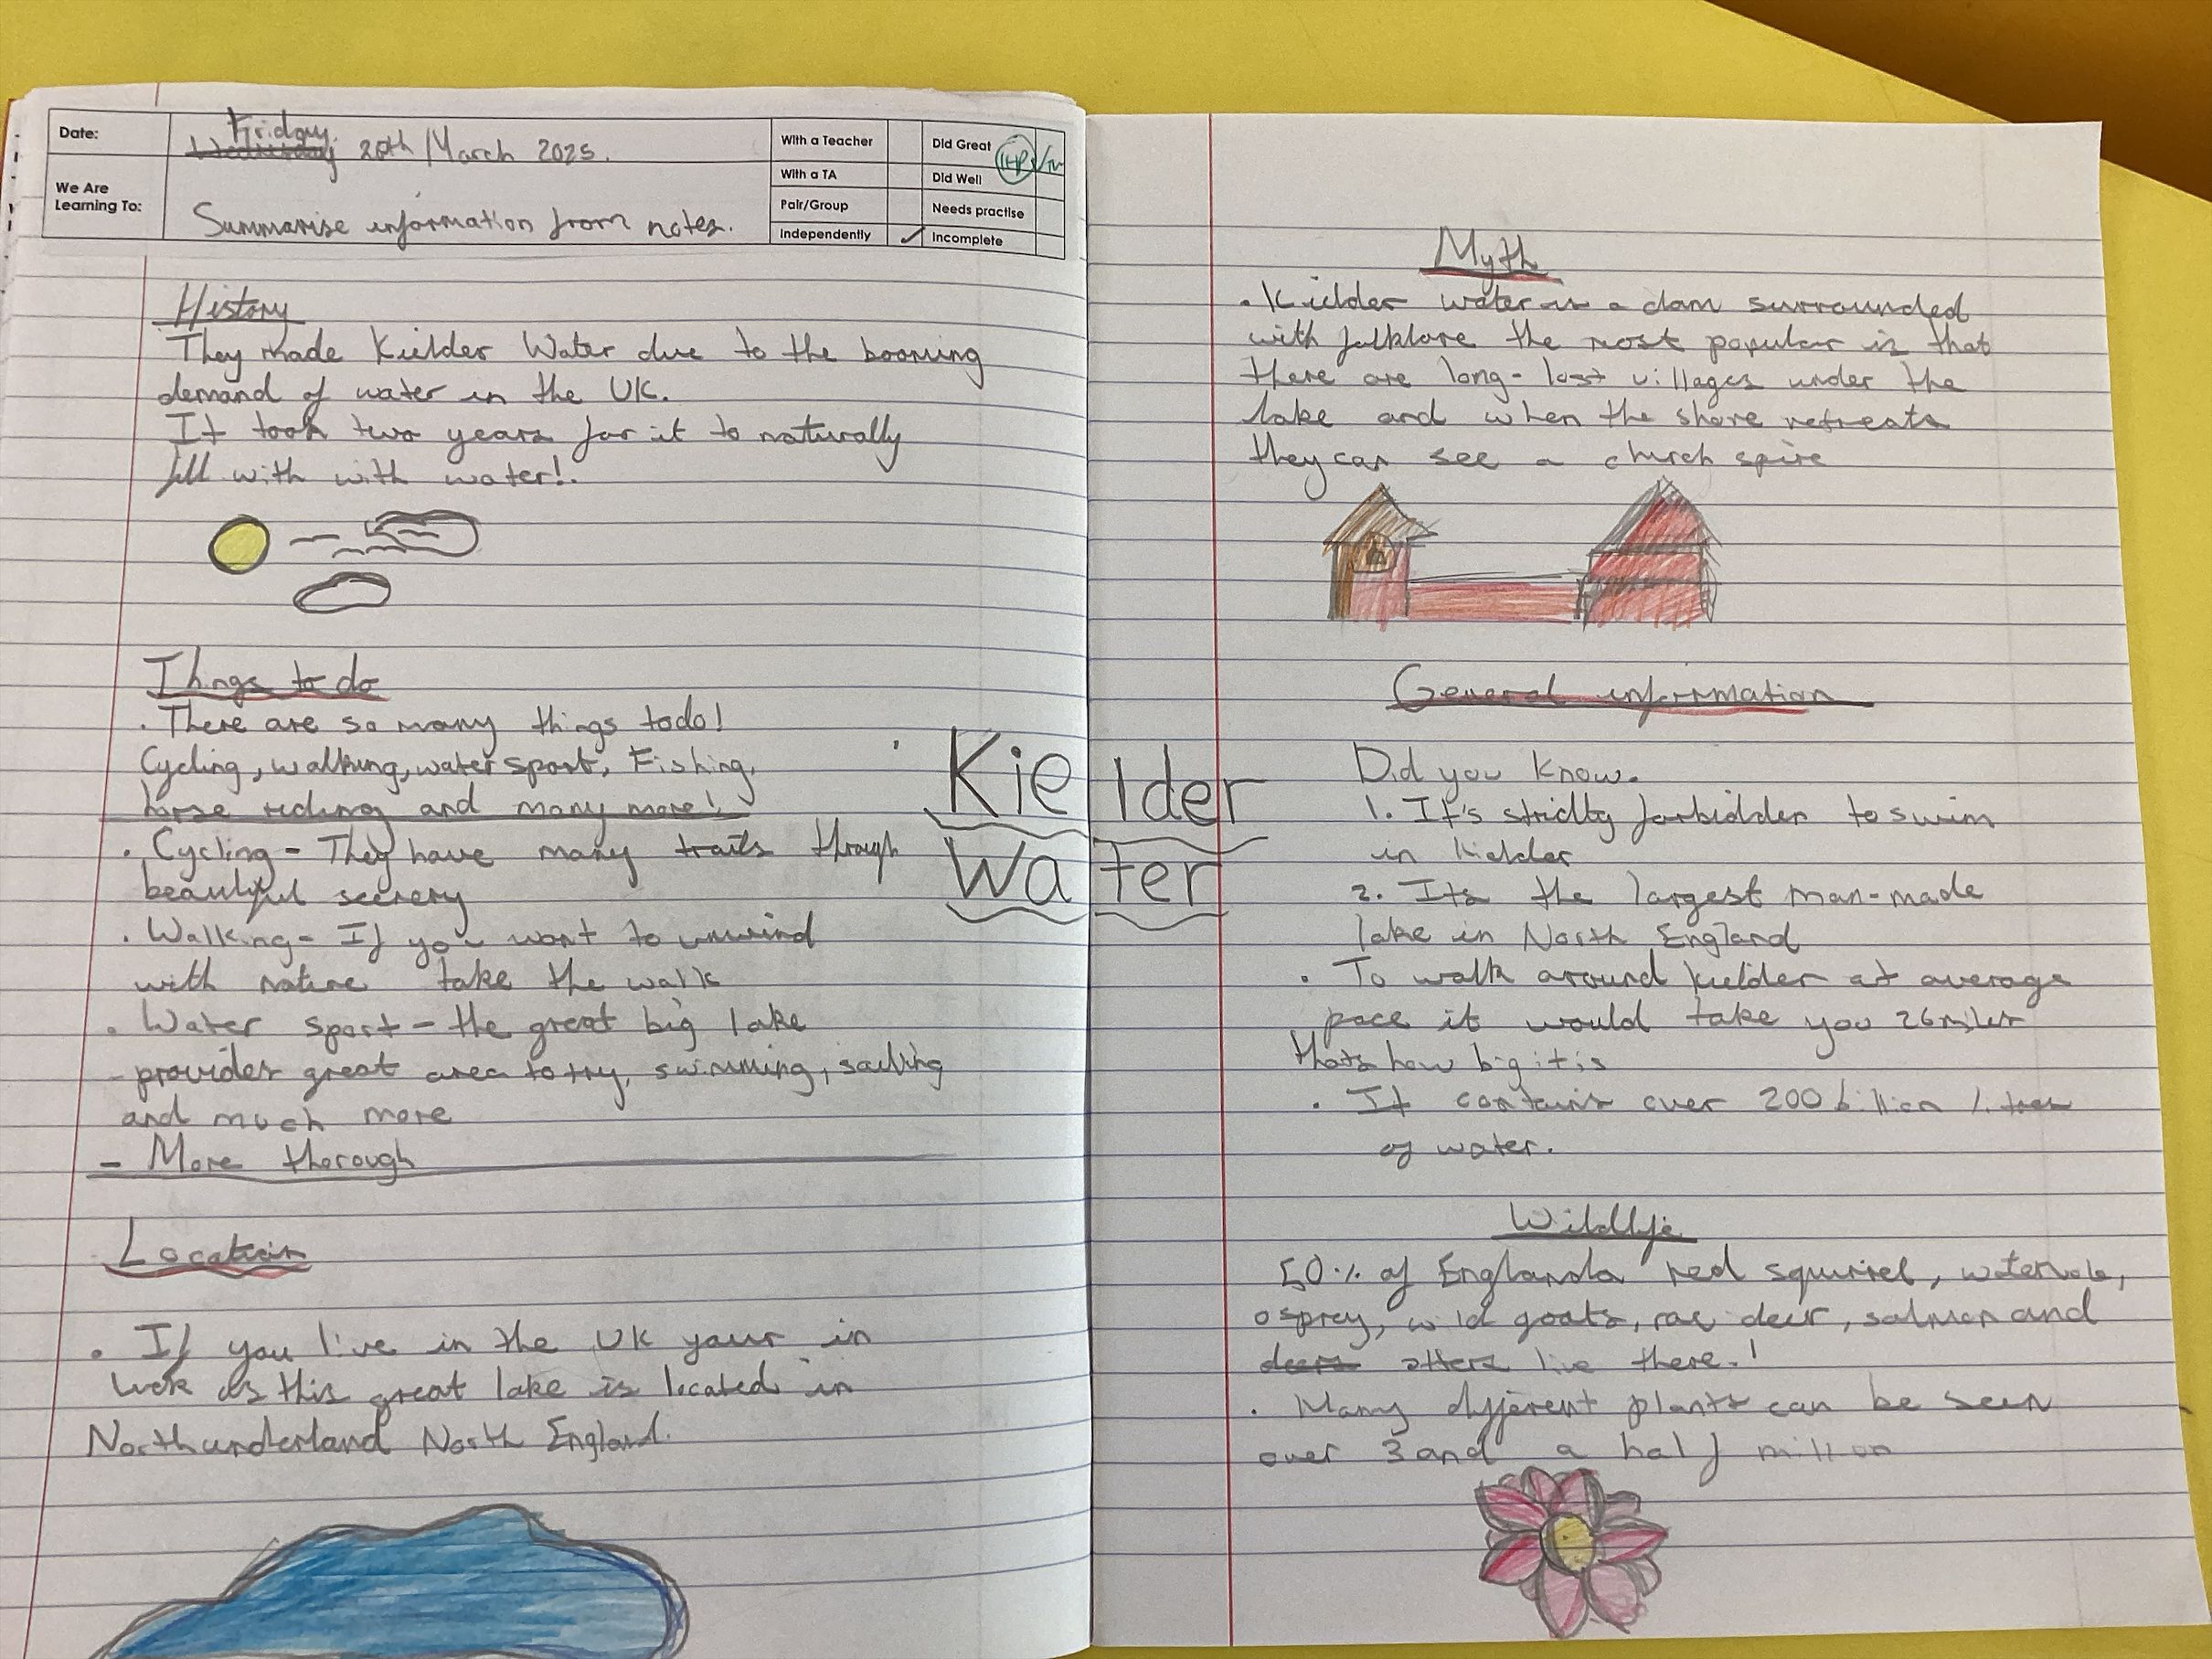 Date:
Friday.
Wednesday 28th March 2025.
We Are
Learning To:
Summarise information from notes.
With a Teacher
With a TA
Pair/Group
Independently ✓
Did Great
Did Well
Needs practise
Incomplete
History
They made Kielder Water due to the booming
demand of water in the UK.
It took two years for it to naturally
fill with with water!.
Things to do
. There are so many things todo!
Cycling, walking, water sport, Fishing,
horse riding and many more!
. Cycling - They have many trails through
beautyful scenery
. Walking - If you want to unwind
with nature take the walk
. Water sport - the great big lake
provides great area to try, swimming, sailing
and much more
- More thorough
Location
. If you live in the UK your in
luck as this great lake is located in
Northunderland North England.
Kielder
Water
Myth
. Kielder water is a dam surrounded
with folklore the most popular is that
there are long-lost villages under the
lake and when the shore retreats
they can see a church spire
General information
Did you know.
1. It's strictly forbidden to swim
in Kielder
2. Its the largest man-made
lake in North England
. To walk around kielder at average
pace it would take you 26 miles
thats how big it is
. It contains over 200 billion litres
of water.
Wildlife
50% of Englands red squirrel, watervole,
osprey, wild goats, roe deer, salmon and
deers otters live there.!
. Many different plants can be seen
over 3 and a half million